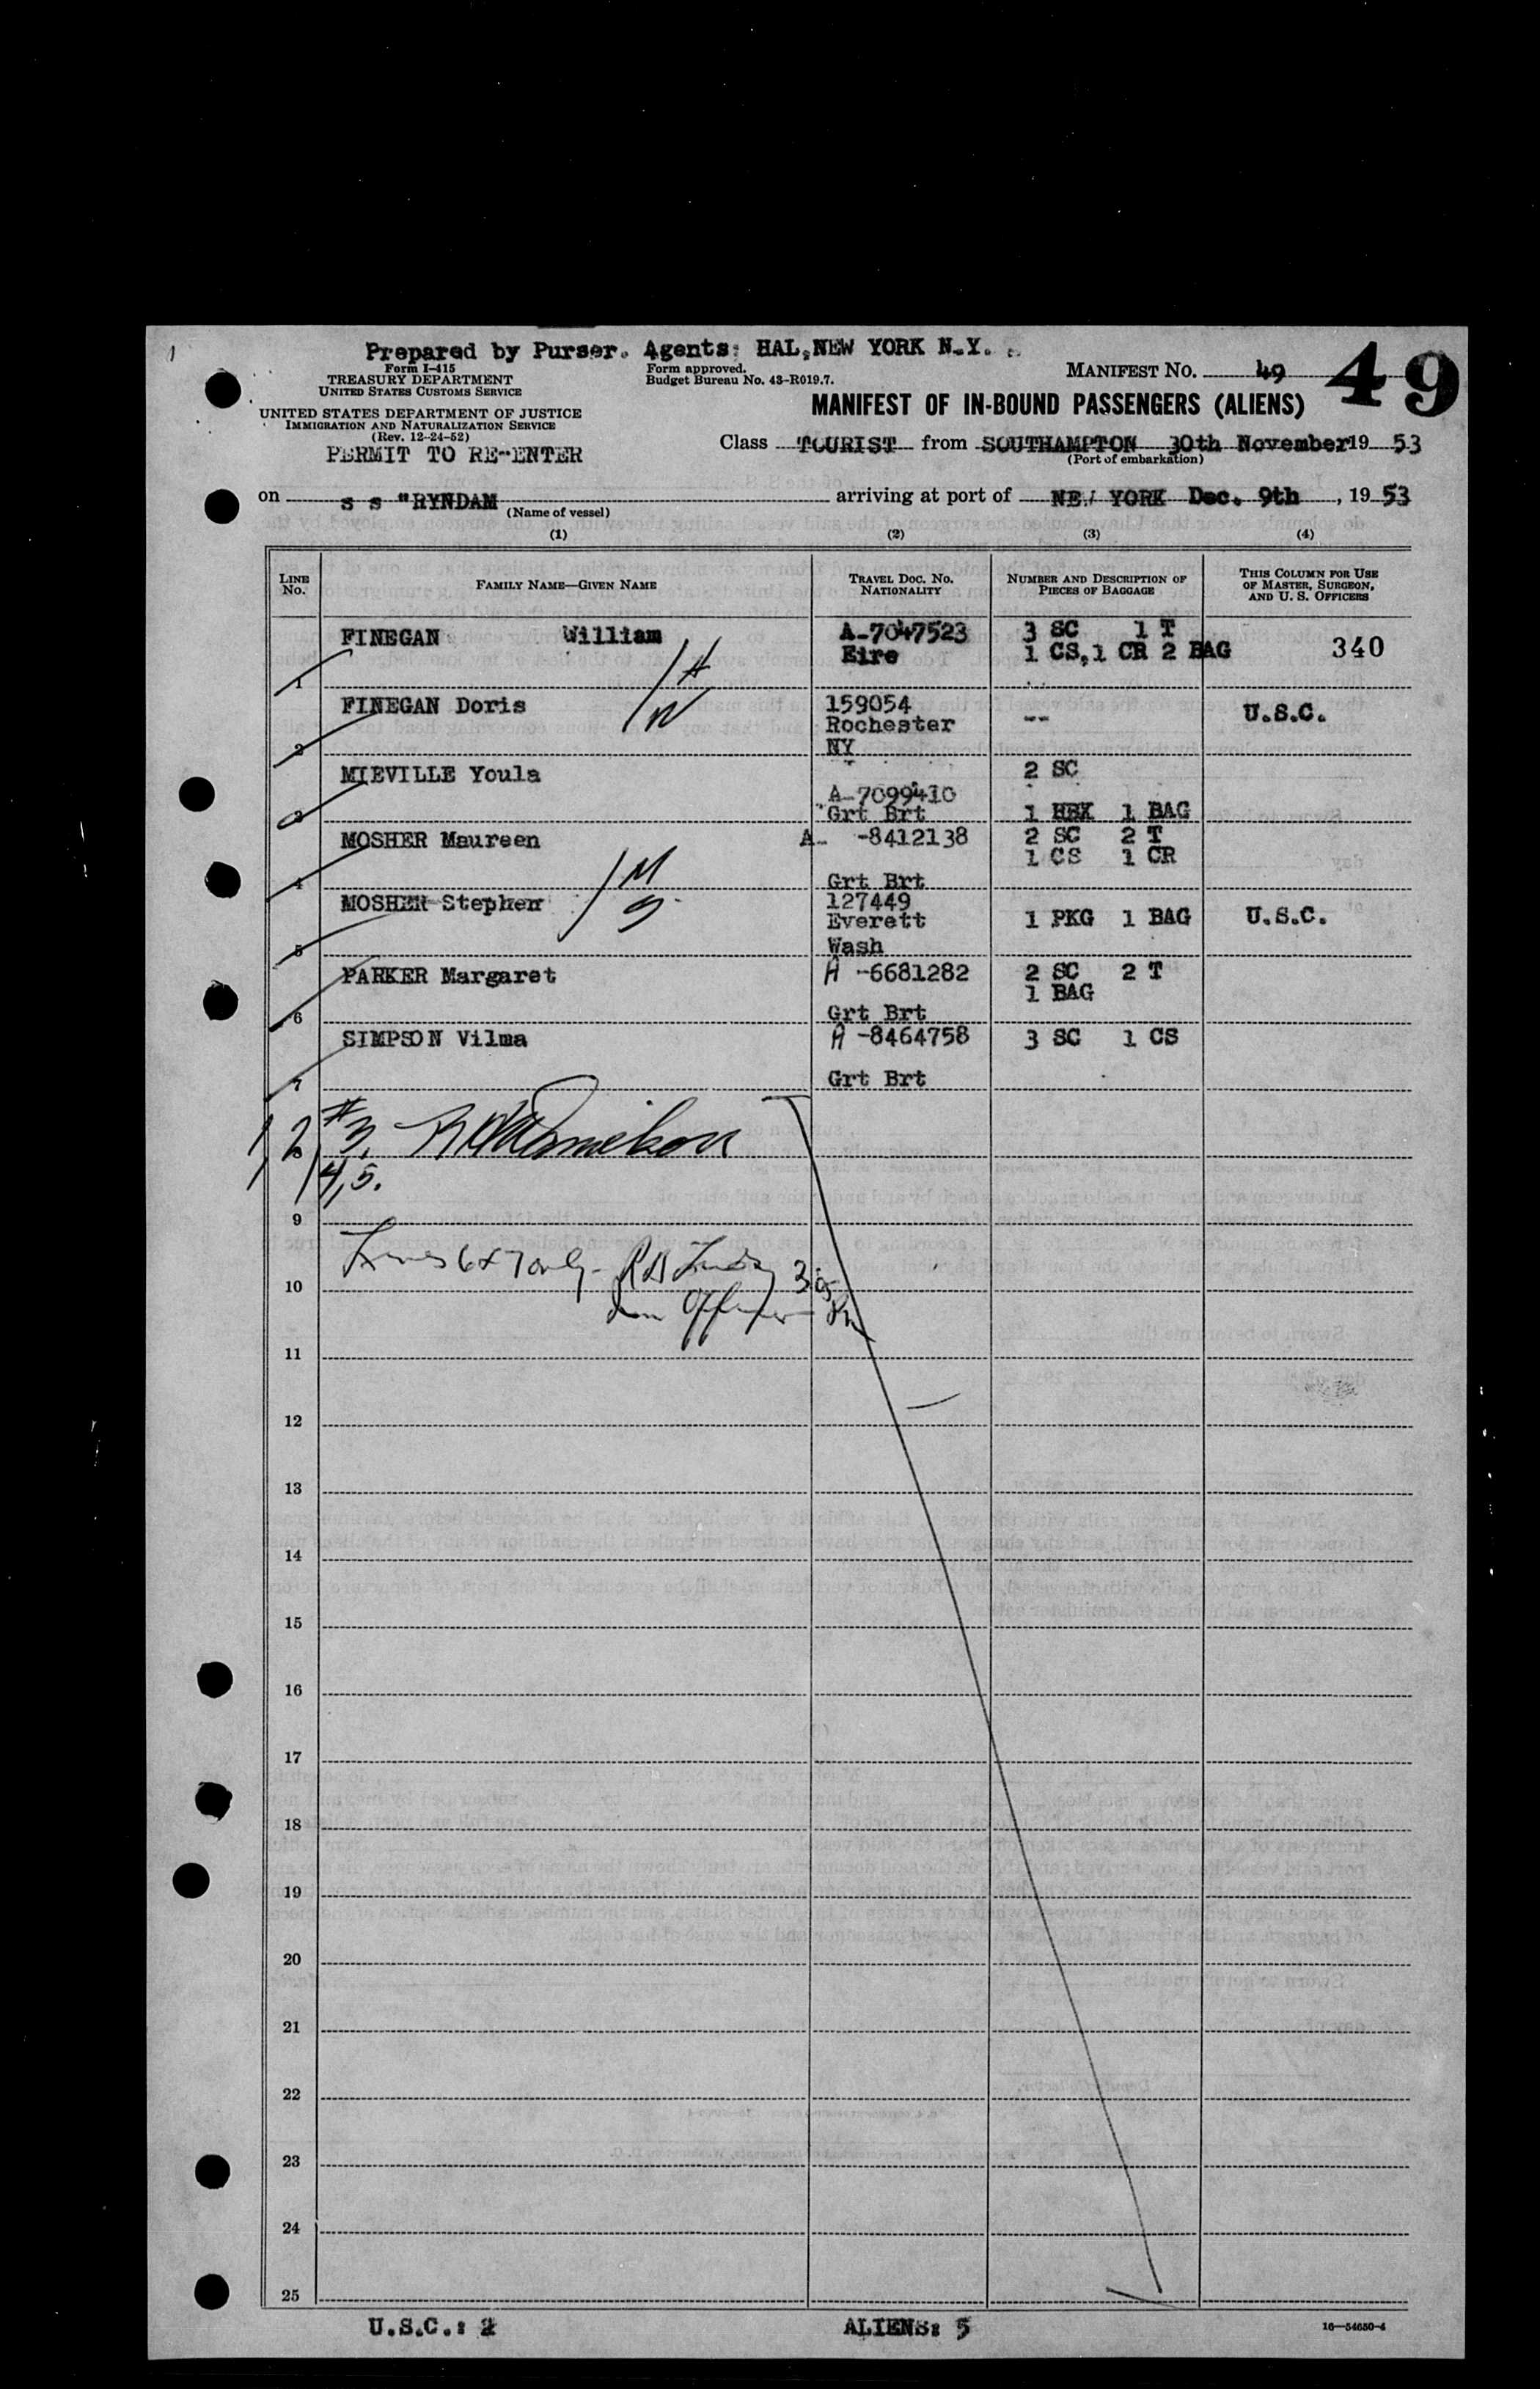 Prepared by Purser. Agents: HAL, NEW YORK N.Y.
Form I-415
TREASURY DEPARTMENT
UNITED STATES CUSTOMS SERVICE
Form approved.
Budget Bureau No. 43-R019.7.
MANIFEST NO. 49
49
UNITED STATES DEPARTMENT OF JUSTICE
IMMIGRATION AND NATURALIZATION SERVICE
(Rev. 12-24-52)
PERMIT TO RE-ENTER
MANIFEST OF IN-BOUND PASSENGERS (ALIENS)
Class TOURIST from SOUTHAMPTON 30th November 19 53
(Port of embarkation)
on s s "RYNDAM arriving at port of NEW YORK Dec. 9th, 19 53
(Name of vessel)
(1) (2) (3) (4)
LINE NO. FAMILY NAME—GIVEN NAME TRAVEL DOC. NO. NATIONALITY NUMBER AND DESCRIPTION OF PIECES OF BAGGAGE THIS COLUMN FOR USE OF MASTER, SURGEON, AND U. S. OFFICERS
FINEGAN William A-7047523 3 SC 1 T
Eire 1 CS, 1 CR 2 BAG 340
1 H
FINEGAN Doris 159054
W Rochester -- U.S.C.
2 NY
MIEVILLE Youla 2 SC
A-7099410
3 Grt Brt 1 HBX 1 BAG
MOSHER Maureen A- -8412138 2 SC 2 T
1 CS 1 CR
4 M Grt Brt
MOSHER Stephen 127449
S Everett 1 PKG 1 BAG U.S.C.
5 Wash
PARKER Margaret A -6681282 2 SC 2 T
1 BAG
6 Grt Brt
SIMPSON Vilma A -8464758 3 SC 1 CS
7 Grt Brt
1, 2, #3,
8
4, 5.
9
Lines 6 & 7 only-
10
11
12
13
14
15
16
17
18
19
20
21
22
23
24
25
U.S.C.: 2 ALIENS: 5 16—54650-4